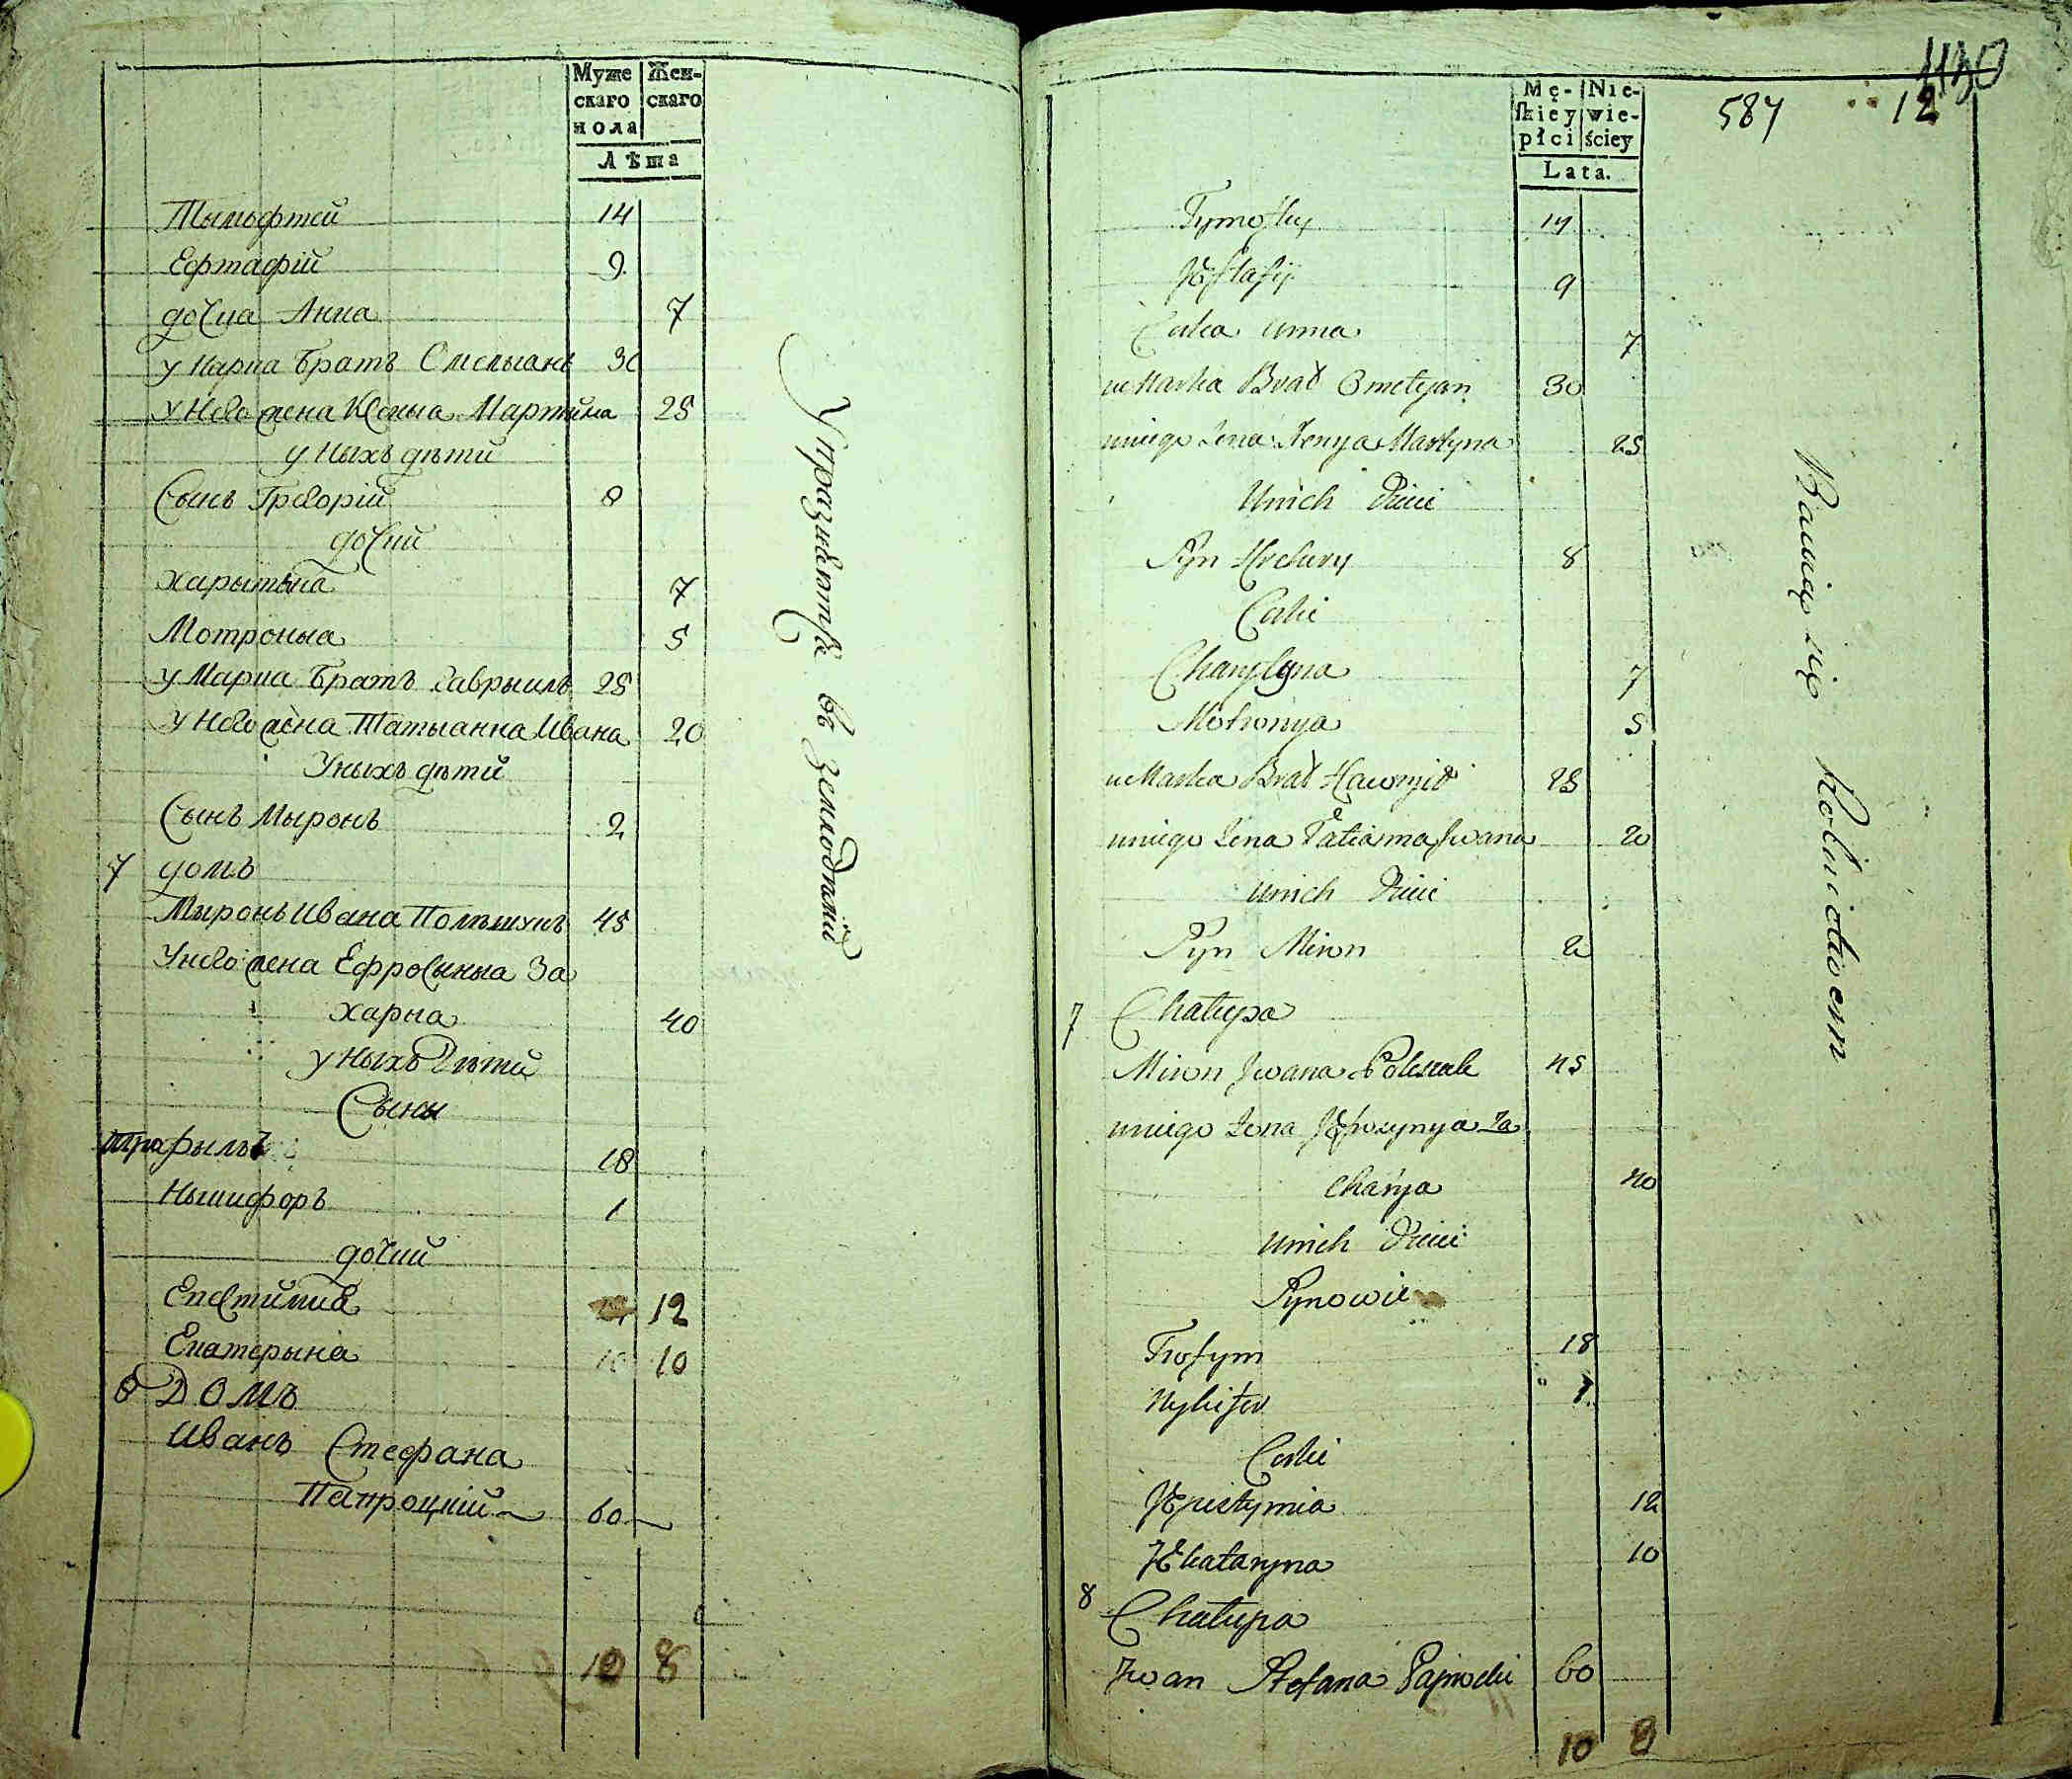 Муже Жен-
скаго скаго
пола
Лѣта
Тымофтей 14
Ефтафiй 9
дочка Анна 7
у Марка Братъ Омелыанъ 30
у Него жена Ксеныа Мартына 25
у Ныхъ дѣти
Сынъ Григорiй 8
дочки
Харытына 7
Мотроныа 5
у Марка Братъ Гаврыилъ 25
у Него жена Татыанна Ивана 20
Уныхъ дѣти
Сынъ Мыронъ 2
7 домъ
Мыронъ Ивана Полѣшукъ 45
Унего жена Ефросыныа За
харка 40
у Ныхъ Дѣти
Сыны
Трафымъ 18
Ныкифоръ 1
дочки
Епистимиа 12
Екатерына 10
8 Домъ
Иванъ Стефана
Папроцкiй 60
10 8
Упражнѣется въ земледѣлiи
1130
587 12
Mę- Nie-
skiey wie-
płci ściey
Lata.
Tymofty 14
Jestafij 9
Corka Anna 7
u Marka Brat Omelyan 30
uniego Zona Xenya Martyna 25
Unich Dzieci
Syn Hrehory 8
Corki
Charytyna 7
Motronya 5
u Marka Brat Hawryił 25
uniego Zona Tatianna Jwana 20
Unich Dzieci
Syn Miron 2
7 Chałupa
Miron Jwana Poleszuk 45
uniego Zona Jefrozynya Za
charya 40
Unich Dzieci
Synowie
Trofym 18
Nykifor 1
Corki
Jepistymia 12
Jekataryna 10
8 Chałupa
Jwan Stefana Paprocki 60
10 8
Bawią się Rolnictwem